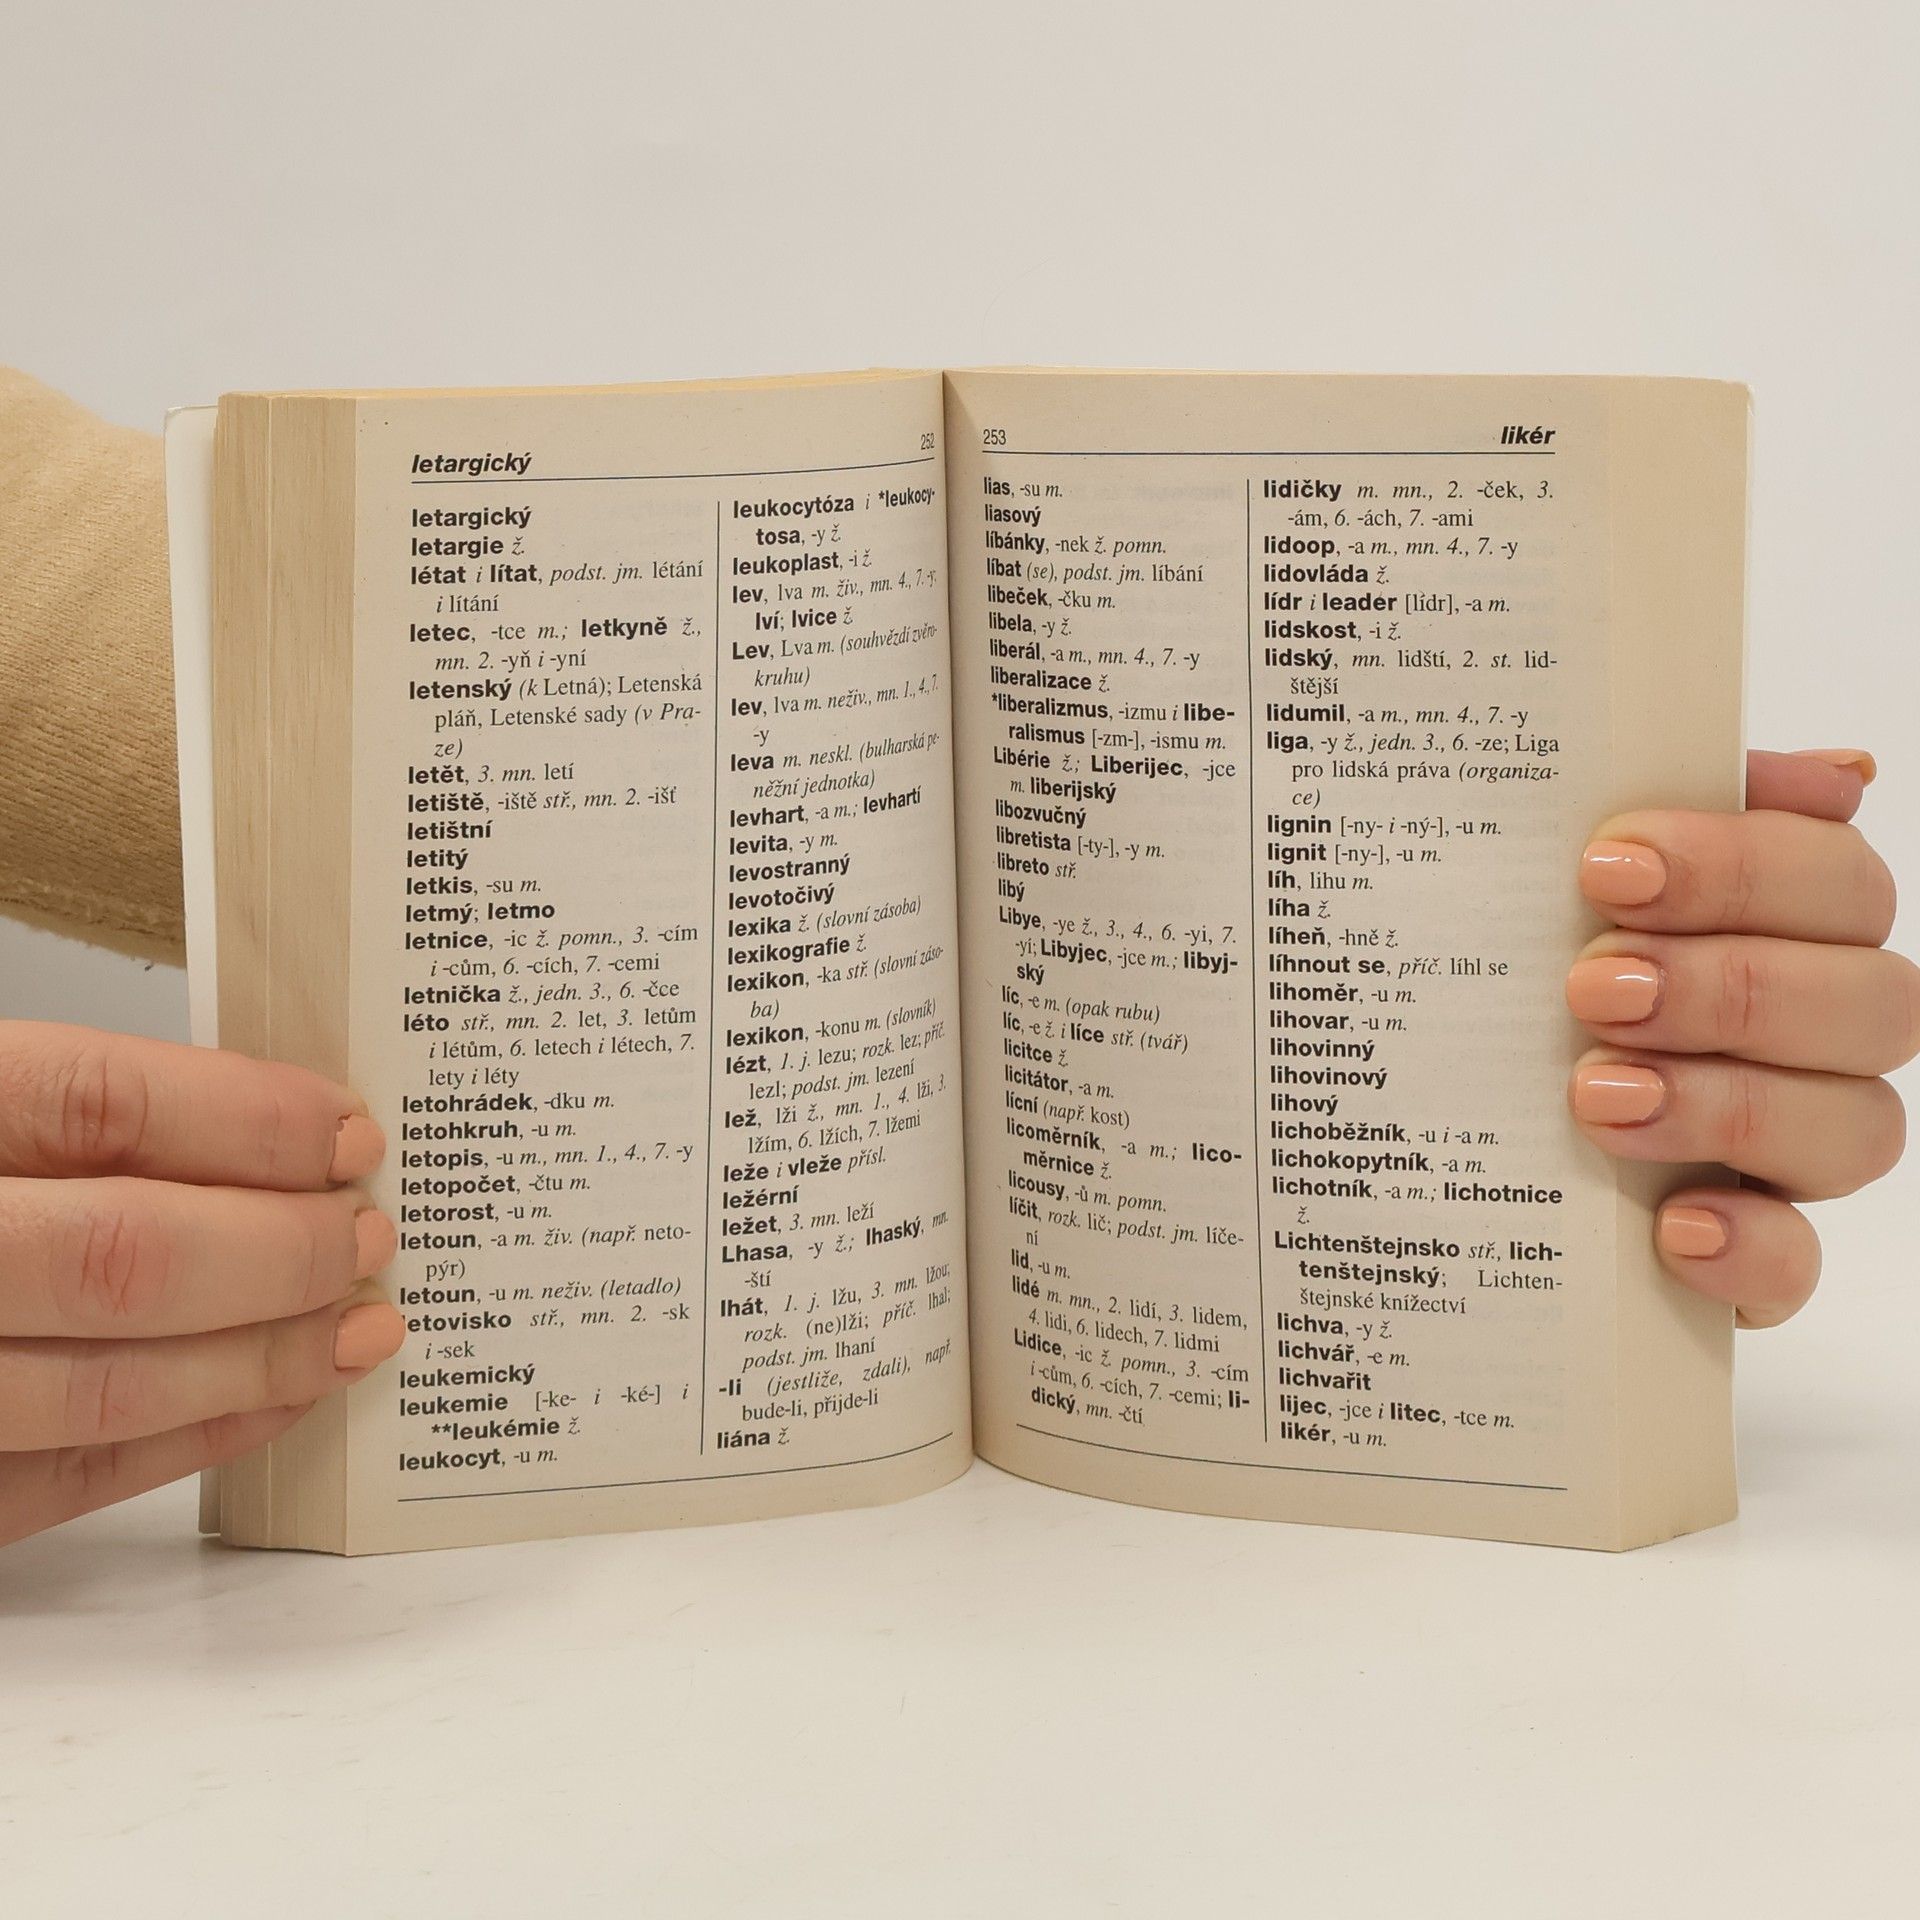 letargický
252
letargický
letargie ž.
létat i lítat, podst. jm. létání
i lítání
letec, -tce m.; letkyně ž.,
mn. 2. -yň i -yní
letenský (k Letná); Letenská
pláň, Letenské sady (v Pra-
ze)
letět, 3. mn. letí
letiště, -iště stř., mn. 2. -išť
letištní
letitý
letkis, -su m.
letmý; letmo
letnice, -ic ž. pomn., 3. -cím
i -cům, 6. -cích, 7. -cemi
letnička ž., jedn. 3., 6. -čce
léto stř., mn. 2. let, 3. letům
i létům, 6. letech i létech, 7.
lety i léty
letohrádek, -dku m.
letohkruh, -u m.
letopis, -u m., mn. 1., 4., 7. -y
letopočet, -čtu m.
letorost, -u m.
letoun, -a m. živ. (např. neto-
pýr)
letoun, -u m. neživ. (letadlo)
letovisko stř., mn. 2. -sk
i -sek
leukemický
leukemie [-ke- i -ké-] i
**leukémie ž.
leukocyt, -u m.
leukocytóza i *leukocy-
tosa, -y ž.
leukoplast, -i ž.
lev, lva m. živ., mn. 4., 7. -y;
lví; lvice ž.
Lev, Lva m. (souhvězdí zvěro-
kruhu)
lev, lva m. neživ., mn. 1., 4., 7.
-y
leva m. neskl. (bulharská pe-
něžní jednotka)
levhart, -a m.; levhartí
levita, -y m.
levostranný
levotočivý
lexika ž. (slovní zásoba)
lexikografie ž.
lexikon, -ka stř. (slovní záso-
ba)
lexikon, -konu m. (slovník)
lézt, 1. j. lezu; rozk. lez; příč.
lezl; podst. jm. lezení
lež, lži ž., mn. 1., 4. lži, 3.
lžím, 6. lžích, 7. lžemi
leže i vleže přísl.
ležérní
ležet, 3. mn. leží
Lhasa, -y ž.; lhaský, mn.
-ští
lhát, 1. j. lžu, 3. mn. lžou;
rozk. (ne)lži; příč. lhal;
podst. jm. lhaní
-li (jestliže, zdali), např.
bude-li, přijde-li
liána ž.
253
likér
lias, -su m.
liasový
líbánky, -nek ž. pomn.
líbat (se), podst. jm. líbání
libeček, -čku m.
libela, -y ž.
liberál, -a m., mn. 4., 7. -y
liberalizace ž.
*liberalizmus, -izmu i libe-
ralismus [-zm-], -ismu m.
Libérie ž.; Liberijec, -jce
m. liberijský
libozvučný
libretista [-ty-], -y m.
libreto stř.
libý
Libye, -ye ž., 3., 4., 6. -yi, 7.
-yí; Libyjec, -jce m.; libyj-
ský
líc, -e m. (opak rubu)
líc, -e ž. i líce stř. (tvář)
licitce ž.
licitátor, -a m.
lícní (např. kost)
licoměrník, -a m.; lico-
měrnice ž.
licousy, -ů m. pomn.
líčit, rozk. lič; podst. jm. líče-
ní
lid, -u m.
lidé m. mn., 2. lidí, 3. lidem,
4. lidi, 6. lidech, 7. lidmi
Lidice, -ic ž. pomn., 3. -cím
i -cům, 6. -cích, 7. -cemi; li-
dický, mn. -čtí
lidičky m. mn., 2. -ček, 3.
-ám, 6. -ách, 7. -ami
lidoop, -a m., mn. 4., 7. -y
lidovláda ž.
lídr i leader [lídr], -a m.
lidskost, -i ž.
lidský, mn. lidští, 2. st. lid-
štější
lidumil, -a m., mn. 4., 7. -y
liga, -y ž., jedn. 3., 6. -ze; Liga
pro lidská práva (organiza-
ce)
lignin [-ny- i -ný-], -u m.
lignit [-ny-], -u m.
líh, lihu m.
líha ž.
líheň, -hně ž.
líhnout se, příč. líhl se
lihoměr, -u m.
lihovar, -u m.
lihovinný
lihovinový
lihový
lichoběžník, -u i -a m.
lichokopytník, -a m.
lichotník, -a m.; lichotnice
ž.
Lichtenštejnsko stř., lich-
tenštejnský; Lichten-
štejnské knížectví
lichva, -y ž.
lichvář, -e m.
lichvařit
lijec, -jce i litec, -tce m.
likér, -u m.